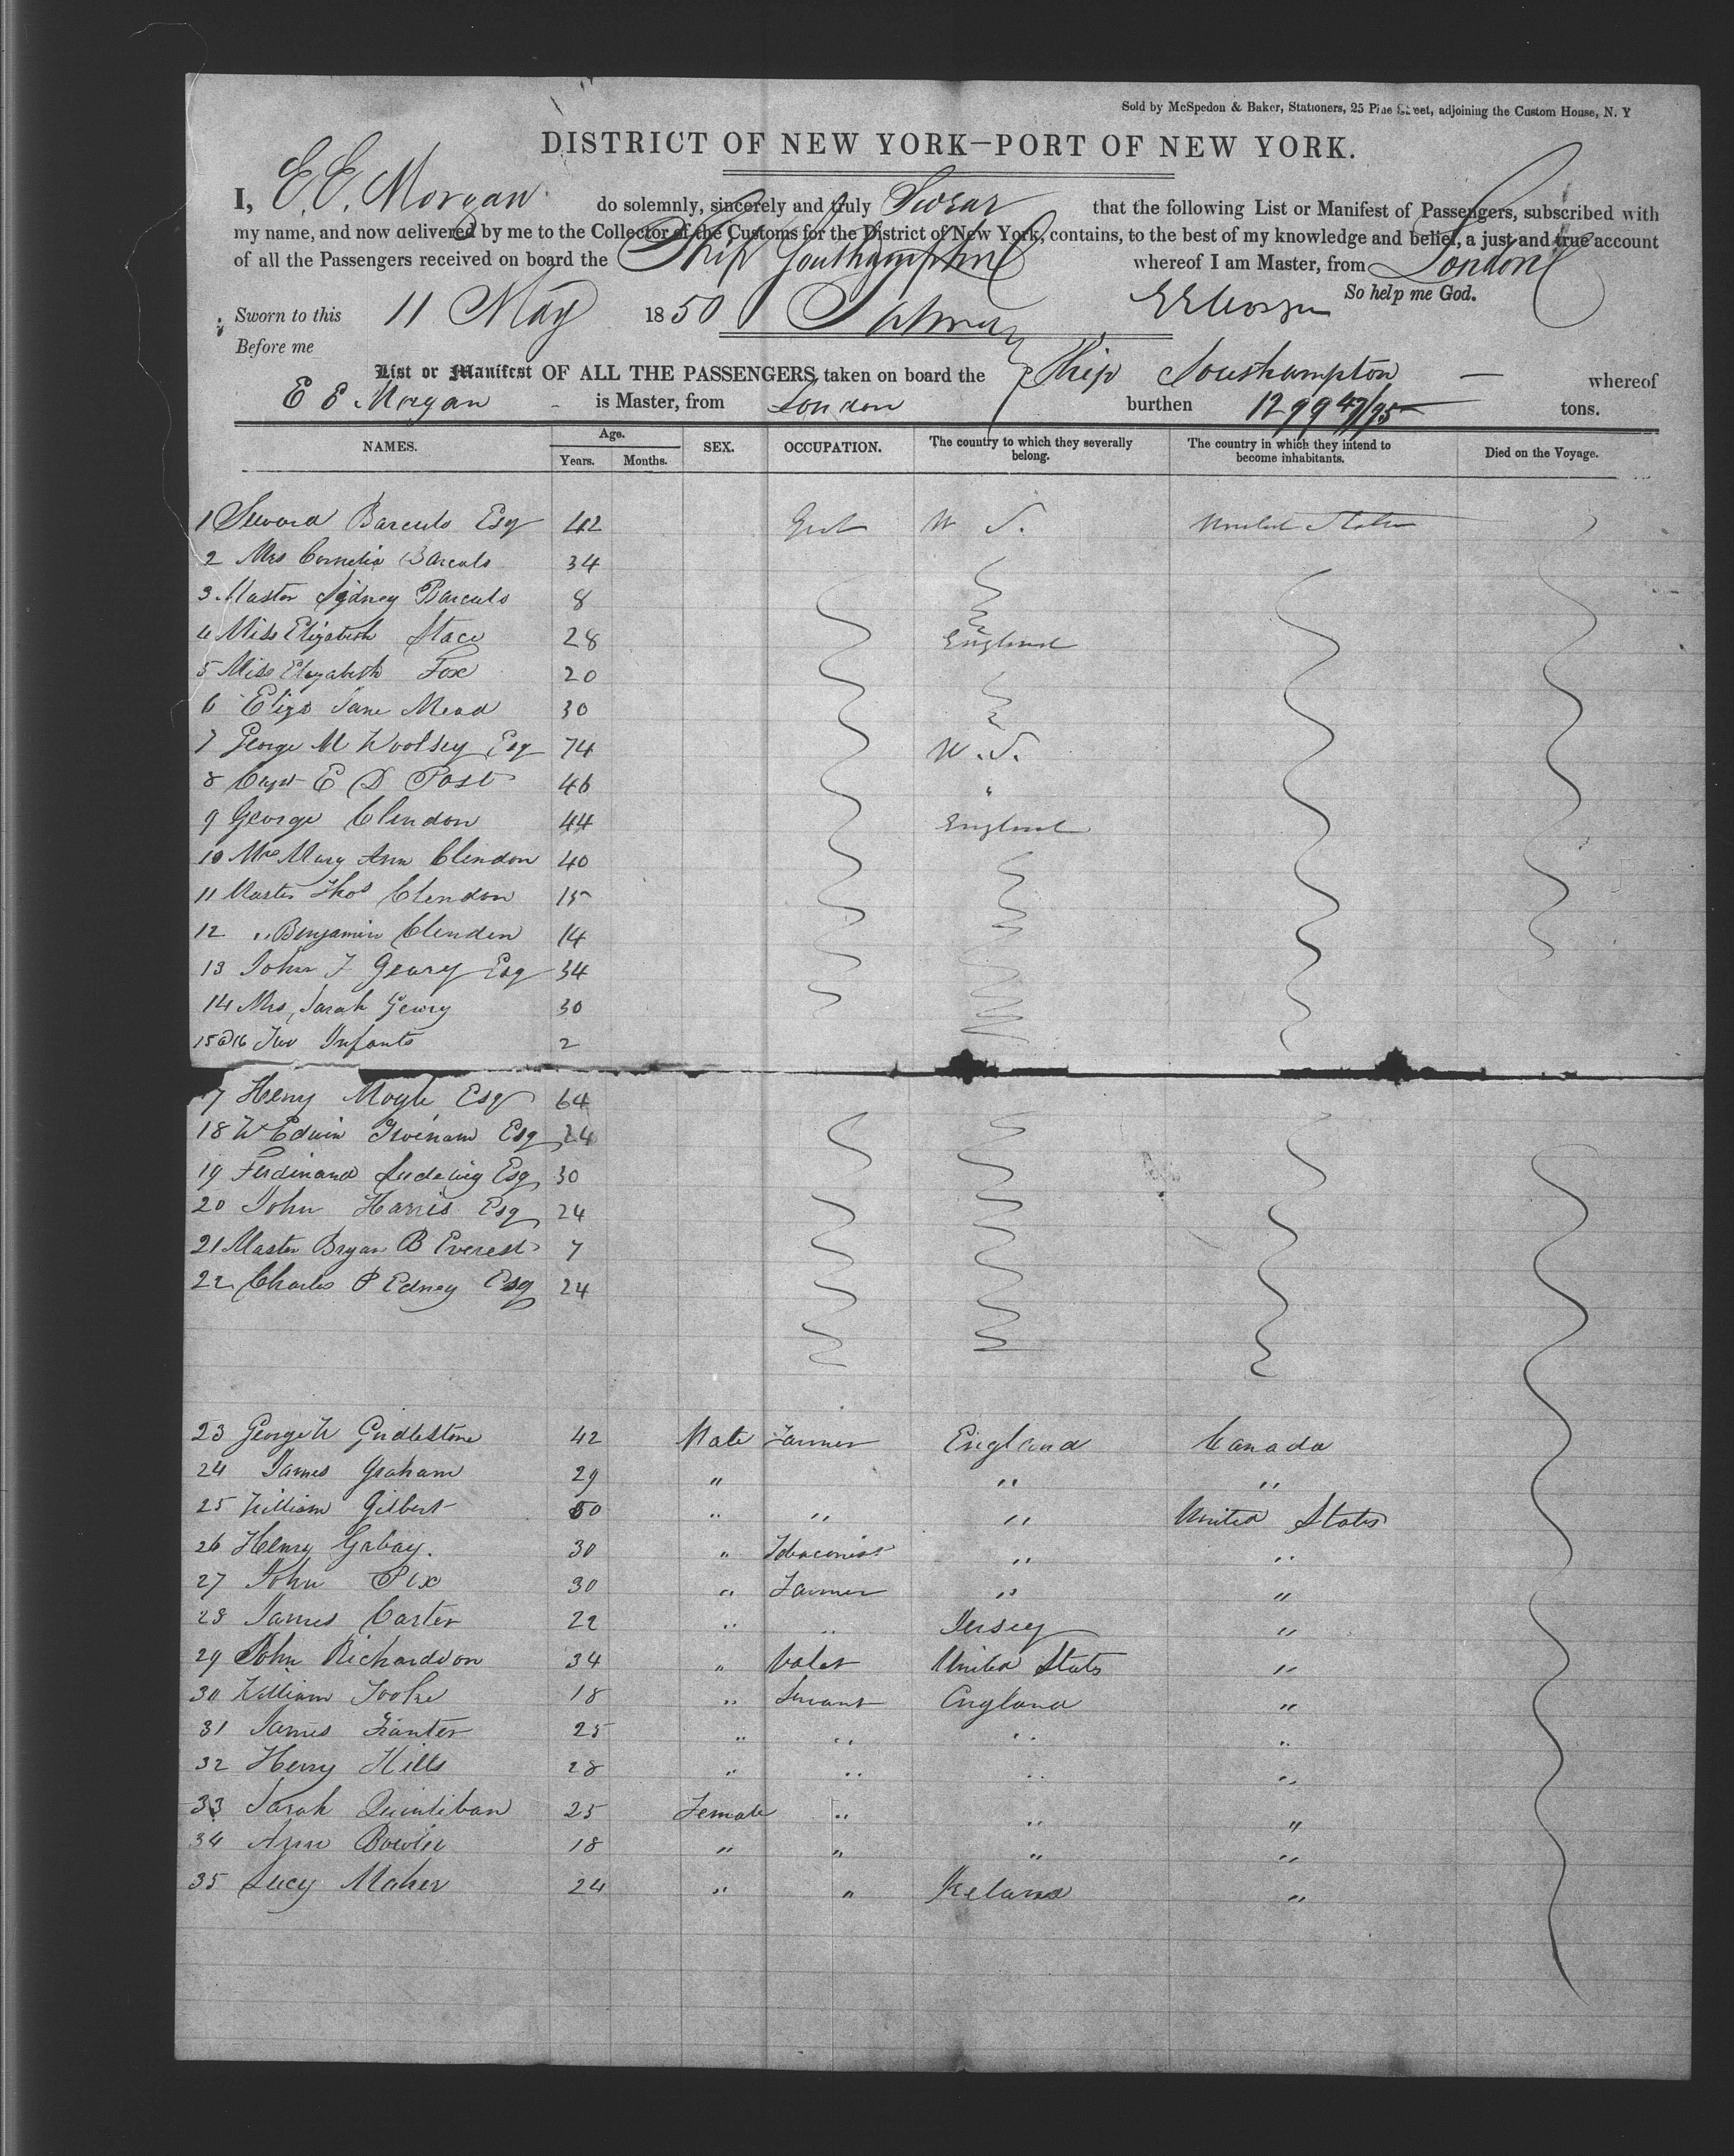 Sold by McSpedon & Baker, Stationers, 25 Pine Street, adjoining the Custom House, N. Y
DISTRICT OF NEW YORK—PORT OF NEW YORK.
I, E. E. Morgan do solemnly, sincerely and truly Swear that the following List or Manifest of Passengers, subscribed with
my name, and now delivered by me to the Collector of the Customs for the District of New York, contains, to the best of my knowledge and belief, a just and true account
of all the Passengers received on board the Ship Southampton whereof I am Master, from London
So help me God.
Sworn to this 11 May 1850 E E Morgan
Before me
List or Manifest OF ALL THE PASSENGERS taken on board the Ship Southampton — whereof
E E Morgan is Master, from London burthen 1299 47/95 tons.
NAMES. Age. SEX. OCCUPATION. The country to which they severally belong. The country in which they intend to become inhabitants. Died on the Voyage.
Years. Months.
1 Seward Barculo Esq 42 Gent U S. United States
2 Mrs Cornelia Barculo 34
3 Master Sidney Barculo 8
4 Miss Elizabeth Stace 28 England
5 Miss Elizabeth Fox 20
6 Eliza Jane Mead 30
7 George M Woolsey Esq 74 U. S.
8 Capt E D Post 46 "
9 George Clendon 44 England
10 Mrs Mary Ann Clendon 40
11 Master Thos Clendon 15
12 " Benjamin Clendon 14
13 John F Geary Esq 34
14 Mrs Sarah Geary 30
15 @ 16 Two Infants 2
7 Henry Moyle Esq 64
18 W Edwin Esq 24
19 Ferdinand Ludewig Esq 30
20 John Harris Esq 24
21 Master Bryan B Everest 7
22 Charles P Edney Esq 24
23 George W Girdlestone 42 Male Farmer England Canada
24 James Graham 29 " " "
25 William Gilbert 50 " " " United States
26 Henry Gabay. 30 " Tobaconist " "
27 John Pix 30 " Farmer " "
28 James Carter 22 " " Jersey "
29 John Richardson 34 " Valet United States "
30 William Tooke 18 " Servant England "
31 James 25 " " " "
32 Henry Hills 28 " " " "
33 Sarah 25 Female " " "
34 Ann Bowler 18 " " " "
35 Lucy Maher 24 " " Ireland "